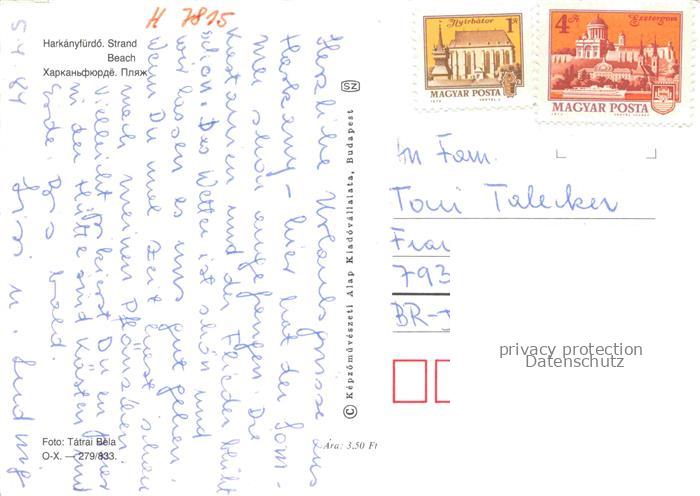 H 7815
Harkányfürdő. Strand
Beach
Харканьфюрдё. Пляж
Herzliche Urlaubsgrüsse aus
Harkany – hier hat der Som-
mer schon angefangen. Die
Kastanien und der Flieder blüht
schon. Das Wetter ist schön und
wir lassen es uns gut gehen.
Wenn Du mal Zeit hast schau
nach meinen Pflänzchen.
Vielleicht Du
in der Hütte sind Kästen und
Erde. Bis bald.
u. Ludwig
Foto: Tátrai Béla
O-X. — 279/833.
SZ
© Képzőművészeti Alap Kiadóvállalata, Budapest
Ára: 3,50 Ft
Nyírbátor
1 Ft
MAGYAR POSTA
Esztergom
4 Ft
MAGYAR POSTA
An Fam.
Toni Talecker
793
BR-
privacy protection
Datenschutz